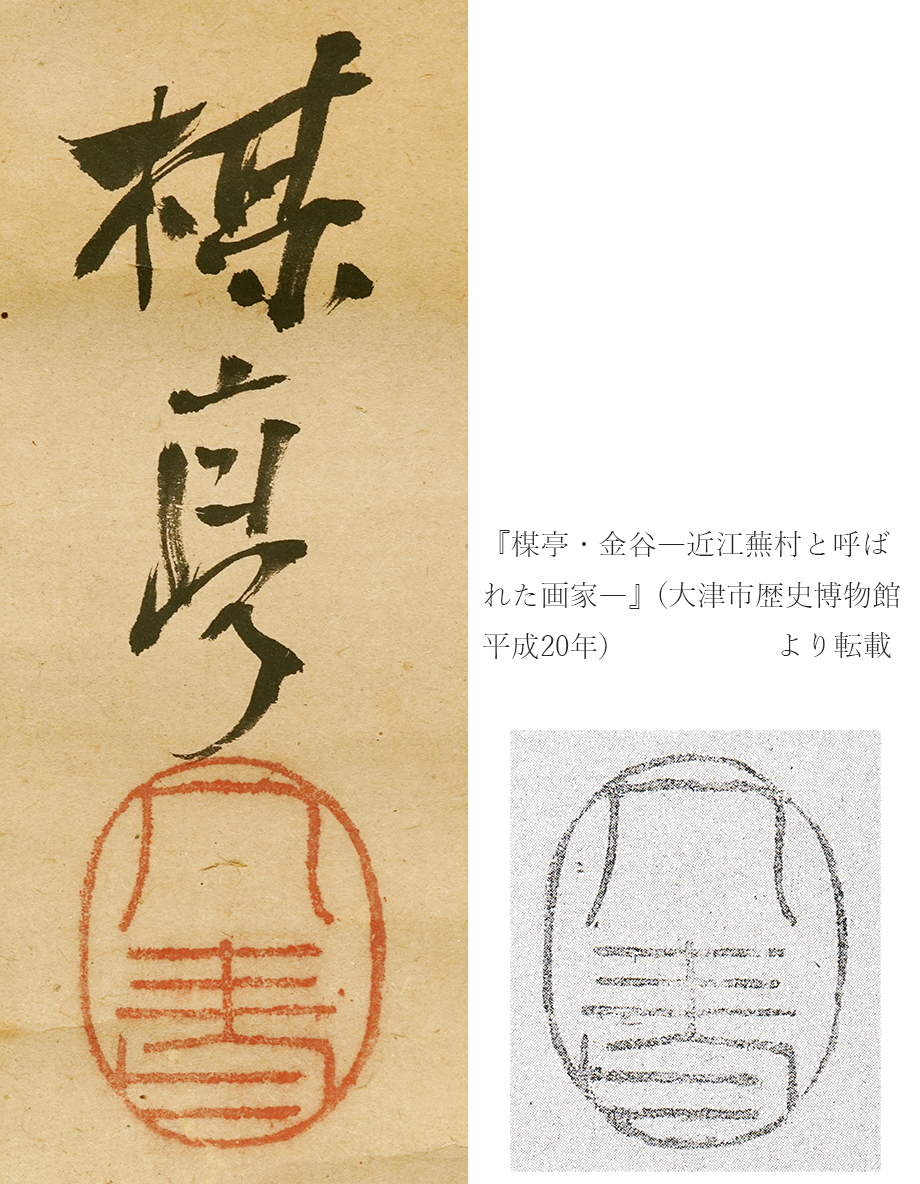 楳亭
『楳亭・金谷―近江蕪村と呼ば
れた画家―』(大津市歴史博物館
平成20年)　より転載